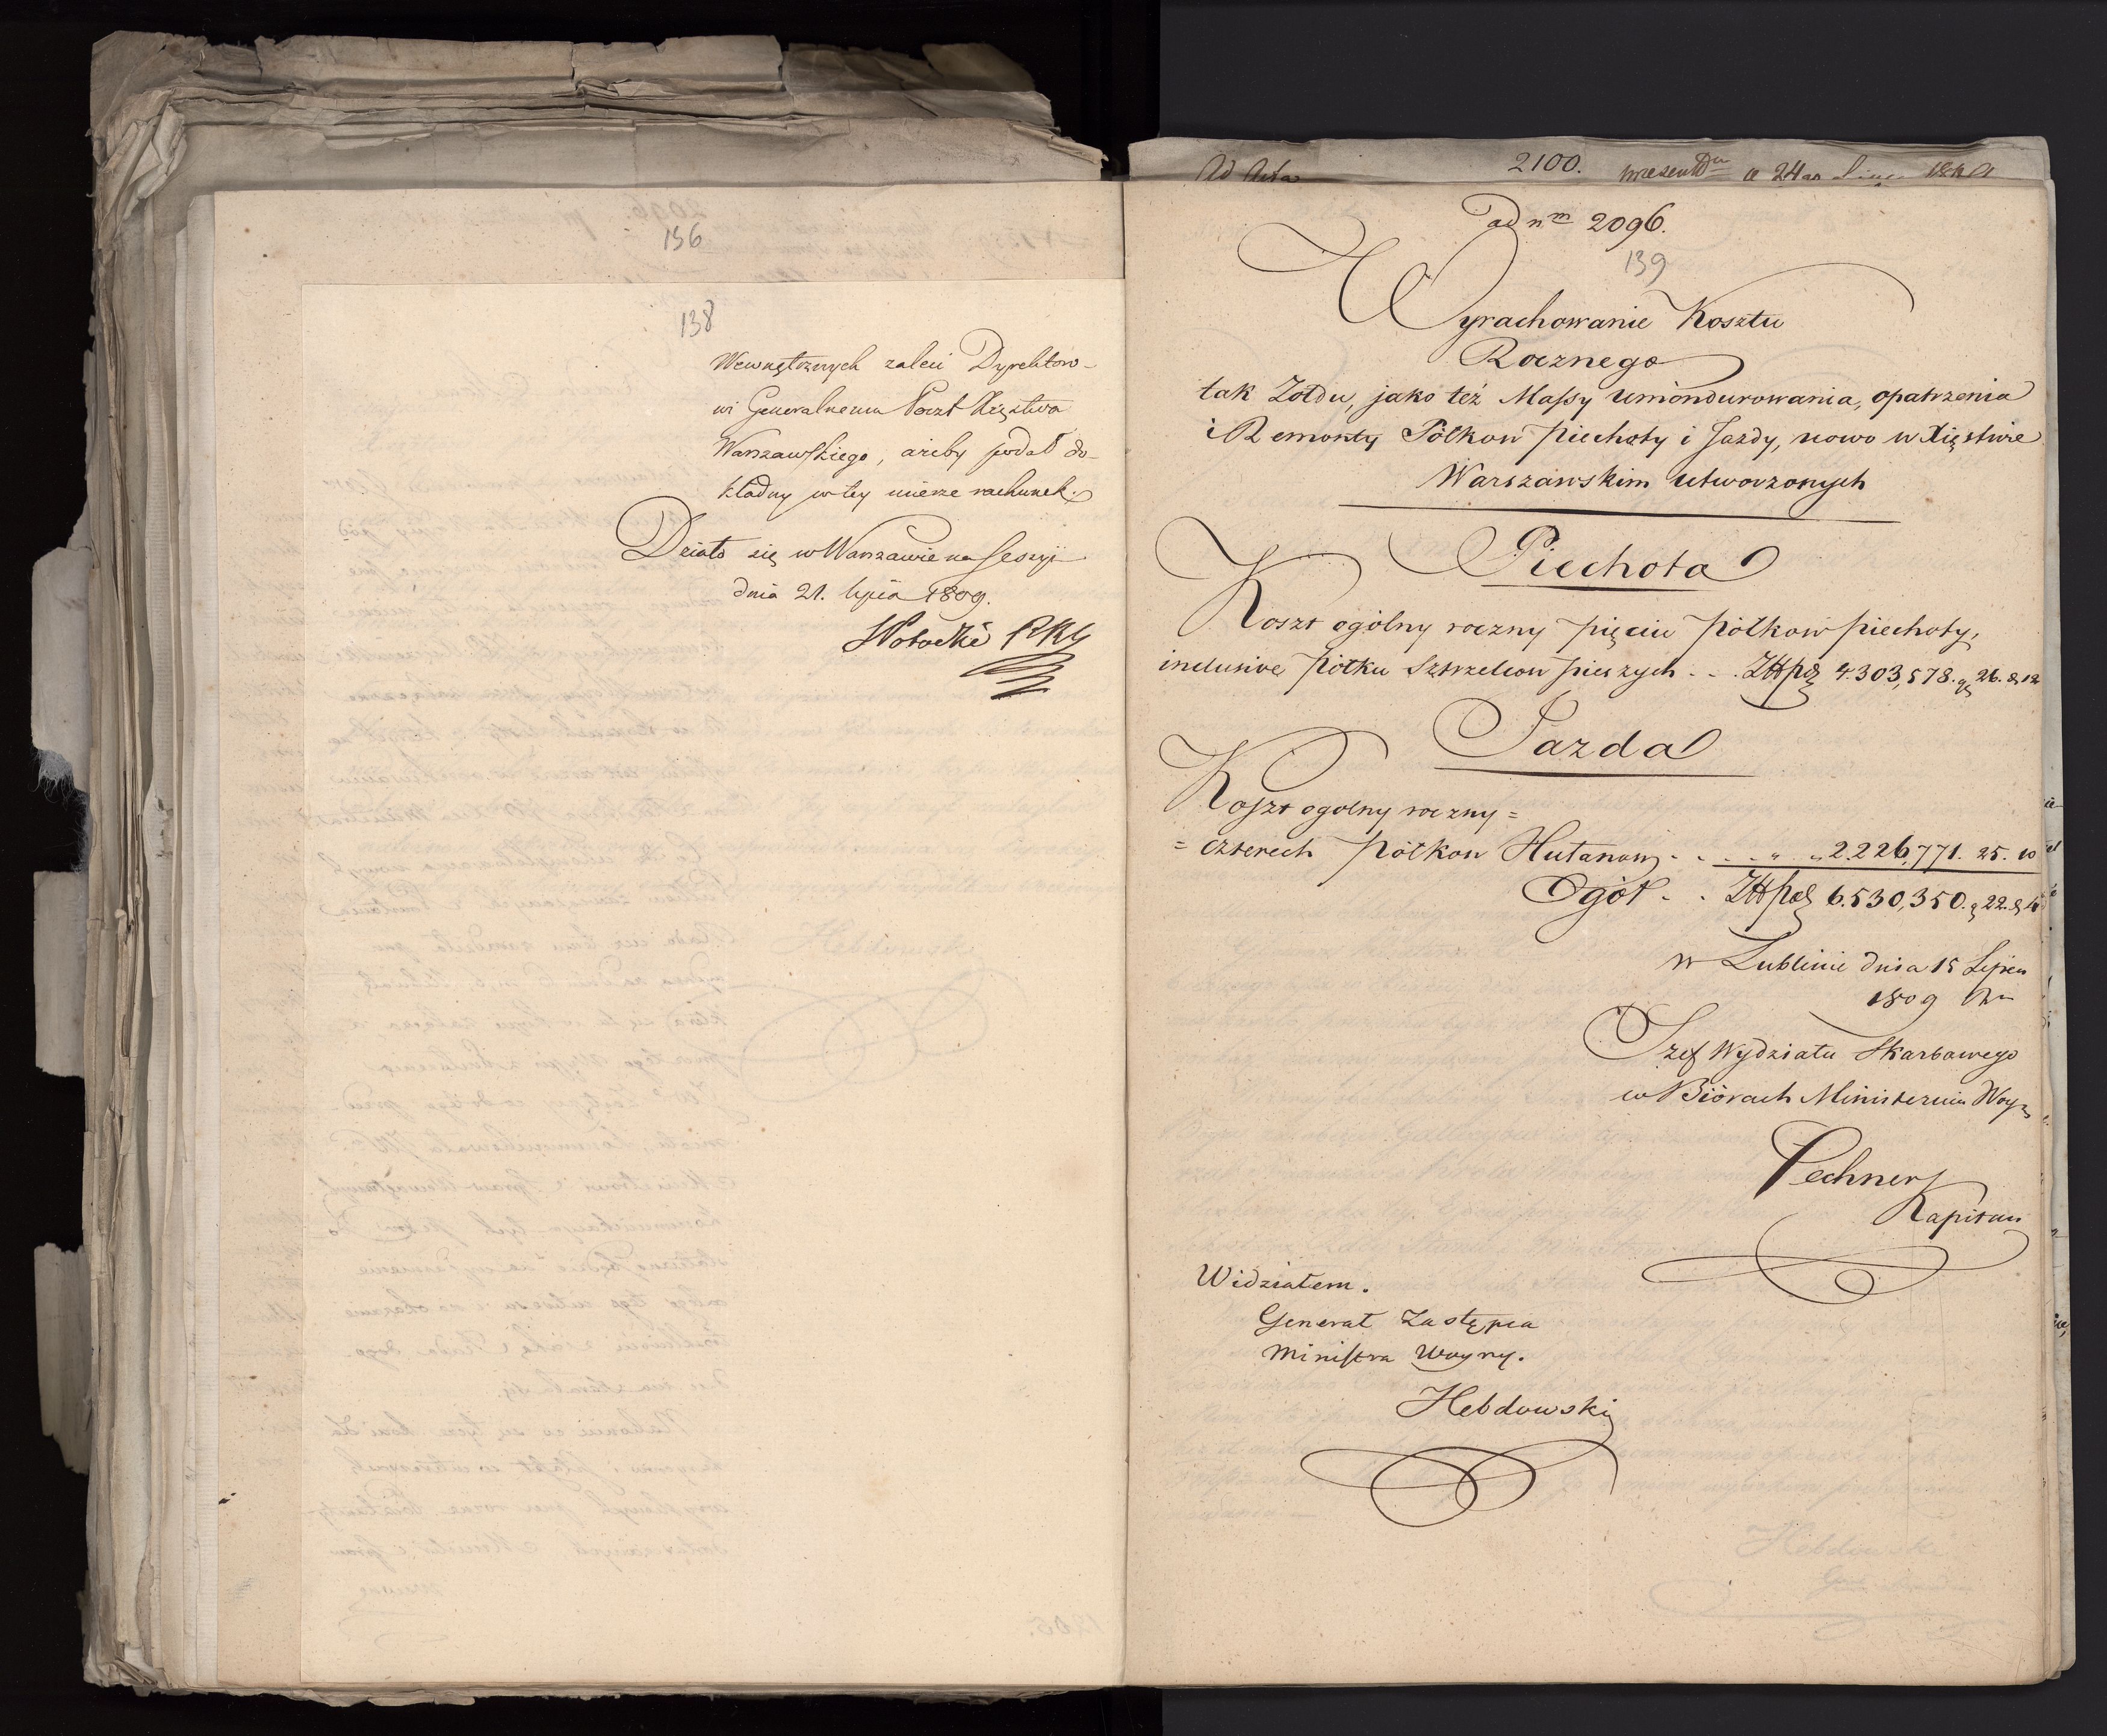 136
138
Wewnętrznych zaleci Dyrektoro-
wi Generalnemu Poczt Xięstwa
Warszawskiego, ażeby podał do-
kładny w tey mierze rachunek.
Działo się w Warszawie na Sessyi
dnia 21. lipca 1809.
Ad Acta 2100. 24
ad nm 2096.
139
Wyrachowanie Kosztu
Rocznego
tak Żołdu, jako też Massy Umóndurowania, opatrzenia
i Remonty Półkow piechoty i Jazdy, nowo w Xięstwie
Warszawskim utworzonych
Piechota
Koszt ogólny roczny pięciu półkow piechoty,
inclusive półku Strzelcow pieszych - - . Złłpol 4.303,578. gr 26. d 12
Jazda
Koszt ogolny roczny =
= czterech półkow Hułanow - - - - " " 2.226,771. 25. 10
Ogół - - Złłpol 6.530,350. g 22. d 4
w Lublinie dnia 15 Lipca
1809 Ru
Szef Wydziału Skarbowego
w Biórach Ministerium Woyny
Lechner
Kapitan
Widziałem.
Generał Zastępca
Ministra Woyny.
Hebdowski